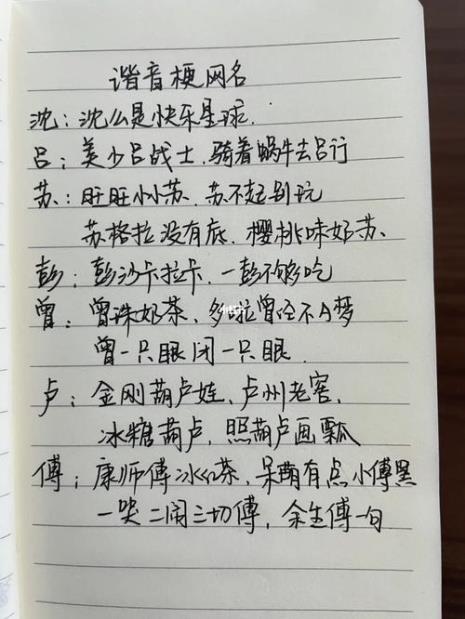 谐音梗网名
沈：沈么是快乐星球.
吕：美少吕战士.骑着蜗牛去吕行
苏：旺旺小小苏、苏不起别玩
苏格拉没有底.樱桃味奶苏、
彭：彭沙卡拉卡、一彭不够吃
曾：曾珠奶茶、多啦曾经不A梦
曾一只眼闭一只眼.
卢：金刚葫卢娃、卢州老窖、
冰糖葫卢，照葫卢画瓢
傅：康师傅冰红茶、呆萌有点小傅黑
一哭二闹三切傅，余生傅一句